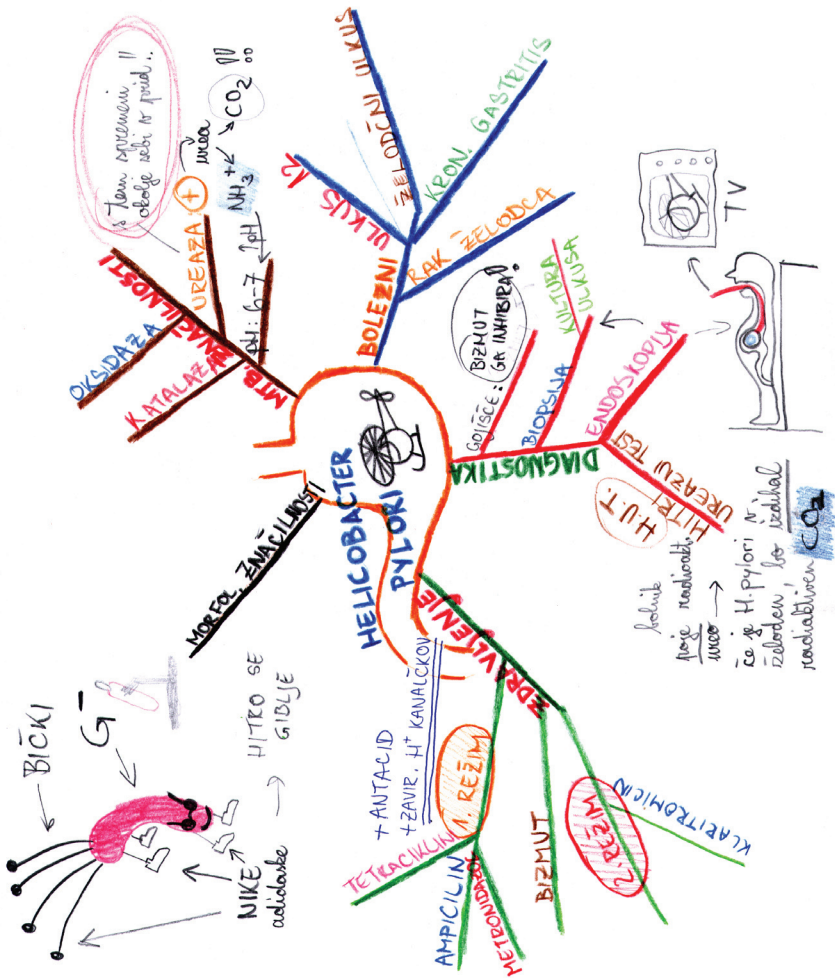 HELICOBACTER
PYLORI
MORFOL. ZNAČILNOSTI
BIČKI
G⁻
HITRO SE
GIBLJE
NIKE
adidaske
MTB. ZNAČILNOSTI
OKSIDAZA
KATALAZA
UREAZA: +
urea
NH₃ + CO₂ !!
pH: 6-7
↑pH
s tem spremeni
okolje sebi v prid!!
BOLEZNI
ULKUS 12
ŽELODČNI ULKUS
KRON. GASTRITIS
RAK ŽELODCA
DIAGNOSTIKA
GOJIŠČE: BIZMUT
GA INHIBIRA!
BIOPSIJA
KULTURA
ULKUSA
ENDOSKOPIJA
TV
HITRI
UREAZNI TEST
H.U.T.
bolnik
poje radioakt.
ureo →
če je H. pylori v
želodcu bo izdihal
radioaktiven CO₂
ZDRAVLJENJE
+ ANTACID
+ ZAVIR. H⁺ KANALČKOV
1. REŽIM
TETRACIKLIN
AMPICILIN
METRONIDAZOL
BIZMUT
2. REŽIM
KLARITROMICIN